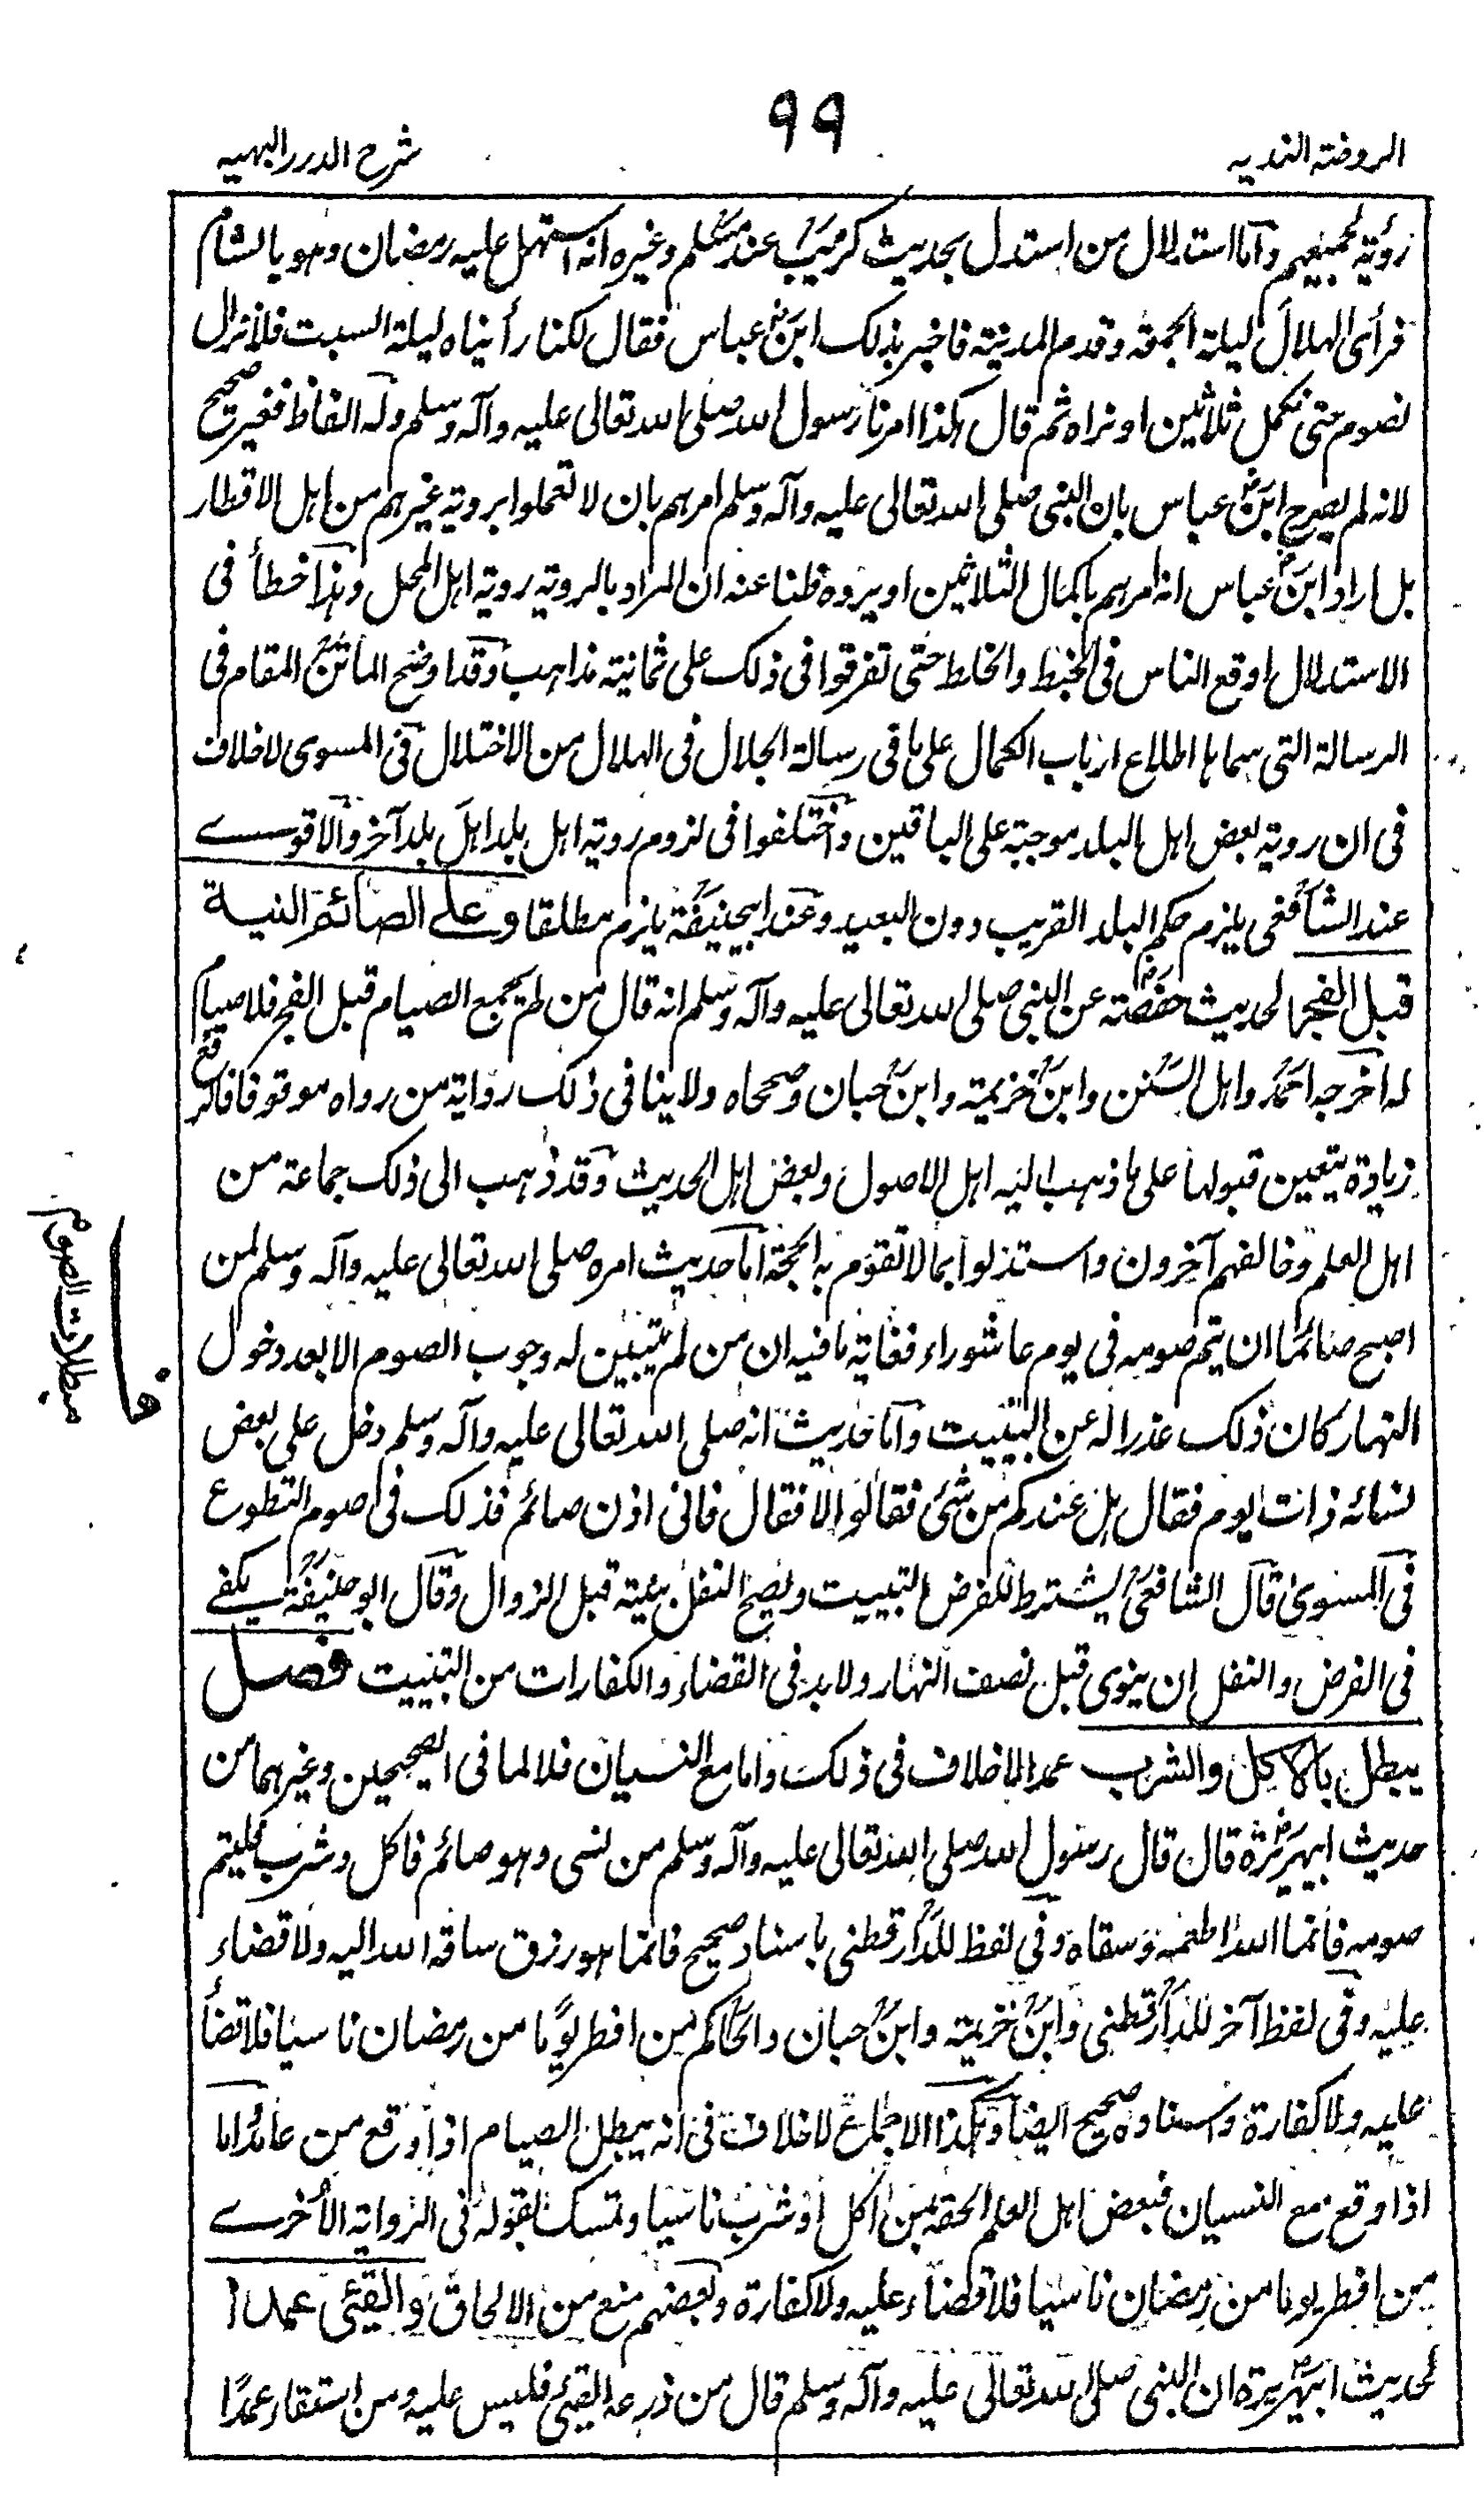 الروضة الندية
99
شرح الدرر البهية
رؤية لجميعهم وأما استدلال من استدل بحديث كريب عند مسلم وغيره انه استهل عليه رمضان وهو بالشام
فرأى الهلال ليلة الجمعة وقدم المدينة فاخبر بذلك ابن عباس فقال لكنا رأيناه ليلة السبت فلا نزال
نصوم حتى نكمل ثلاثين او نراه ثم قال هكذا امرنا رسول الله صلى الله تعالى عليه وآله وسلم وله الفاظ فغير صحيح
لانه لم يصرح ابن عباس بان النبي صلى الله تعالى عليه وآله وسلم امرهم بان لا تعملوا بروية غيرهم من اهل الاقطار
بل اراد ابن عباس انه امرهم باكمال الثلاثين او يروه ظنا عنه ان المراد بالروية روية اهل المحل وهذا خطأ في
الاستدلال اوقع الناس في الخبط والخلط حتى تفرقوا في ذلك على ثمانية مذاهب وقد اوضح الماتن المقام في
الرسالة التي سماها اطلاع ارباب الكمال على ما في رسالة الجلال في الهلال من الاختلال في المسوى لاخلاف
في ان روية بعض اهل البلد موجبة على الباقين واختلفوا في لزوم روية اهل بلد اهل بلد آخر والاقوى
عند الشافعي يلزم حكم البلد القريب دون البعيد وعند ابيحنيفة يلزم مطلقا وعلى الصائم النية
قبل الفجر لحديث حفصة عن النبي صلى الله تعالى عليه وآله وسلم انه قال من لم يجمع الصيام قبل الفجر فلا صيام
له اخرجه احمد واهل السنن وابن خزيمة وابن حبان وصححاه ولا ينافي ذلك رواية من رواه موقوفا فالرفع
زيادة يتعين قبولها على ما ذهب اليه اهل الاصول وبعض اهل الحديث وقد ذهب الى ذلك جماعة من
اهل العلم وخالفهم آخرون واستدلوا بما لا تقوم به الحجة اما حديث امره صلى الله تعالى عليه وآله وسلم لمن
اصبح صائما ان يتم صومه في يوم عاشوراء فغاية ما فيه ان من لم يتبين له وجوب الصوم الا بعد دخول
النهار كان ذلك عذرا له عن التبييت وأما حديث انه صلى الله تعالى عليه وآله وسلم دخل على بعض
نسائه ذات يوم فقال هل عندكم من شئ فقالوا لا فقال فاني اذن صائم فذلك في صوم التطوع
في المسوى قال الشافعي يشترط للفرض التبييت ويصح النفل بنية قبل الزوال وقال ابو حنيفة يكفي
في الفرض والنفل ان ينوى قبل نصف النهار ولا بد في القضاء والكفارات من التبييت فصل
يبطل بالاكل والشرب عمدا لاخلاف في ذلك واما مع النسيان فلا لما في الصحيحين وغيرهما من
حديث ابيهريرة قال قال رسول الله صلى الله تعالى عليه وآله وسلم من نسى وهو صائم فاكل وشرب فليتم
صومه فانما الله اطعمه وسقاه وفي لفظ للدارقطني باسناد صحيح فانما هو رزق ساقه الله اليه ولا قضاء
عليه وفي لفظ آخر للدارقطني وابن خزيمة وابن حبان والحاكم من افطر يوما من رمضان ناسيا فلا قضأ
عليه ولا كفارة واسناده صحيح ايضا وهكذا الاجماع لاخلاف في انه يبطل الصيام اذا وقع من عامد اما
اذا وقع مع النسيان فبعض اهل العلم الحقه بمن اكل او شرب ناسيا وتمسك بقوله في الرواية الأخرى
من افطر يوما من رمضان ناسيا فلا قضاء عليه ولا كفارة وبعضهم منع من الالحاق والقئ عمدا
لحديث ابيهريرة ان النبي صلى الله تعالى عليه وآله وسلم قال من ذرعه القئ فليس عليه ومن استقاء عمدًا
ف
مبطلات الصوم